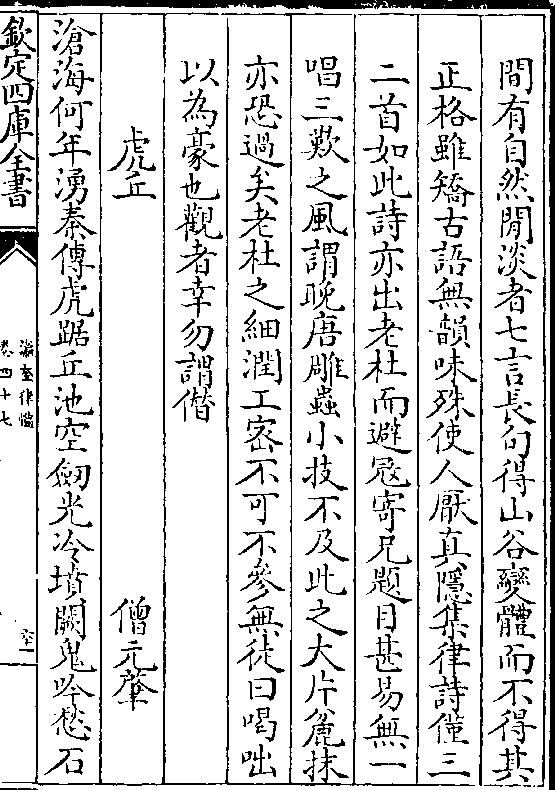 間有自然閒淡者七言長句得山谷變體而不得其
正格雖矯古語無韻味殊使人厭真隱集律詩僅三
二首如此詩亦出老杜而避寇寄兄題目甚易無一
唱三歎之風謂晚唐雕蟲小技不及此之大片麄抹
亦恐過矣老杜之細潤工密不可不參無徒曰喝咄
以為豪也觀者幸勿謂僭
虎丘　僧元肇
滄海何年湧秦傳虎踞丘池空劒光冷墳闕鬼吟愁石
欽定四庫全書
瀛奎律髓
卷四十七